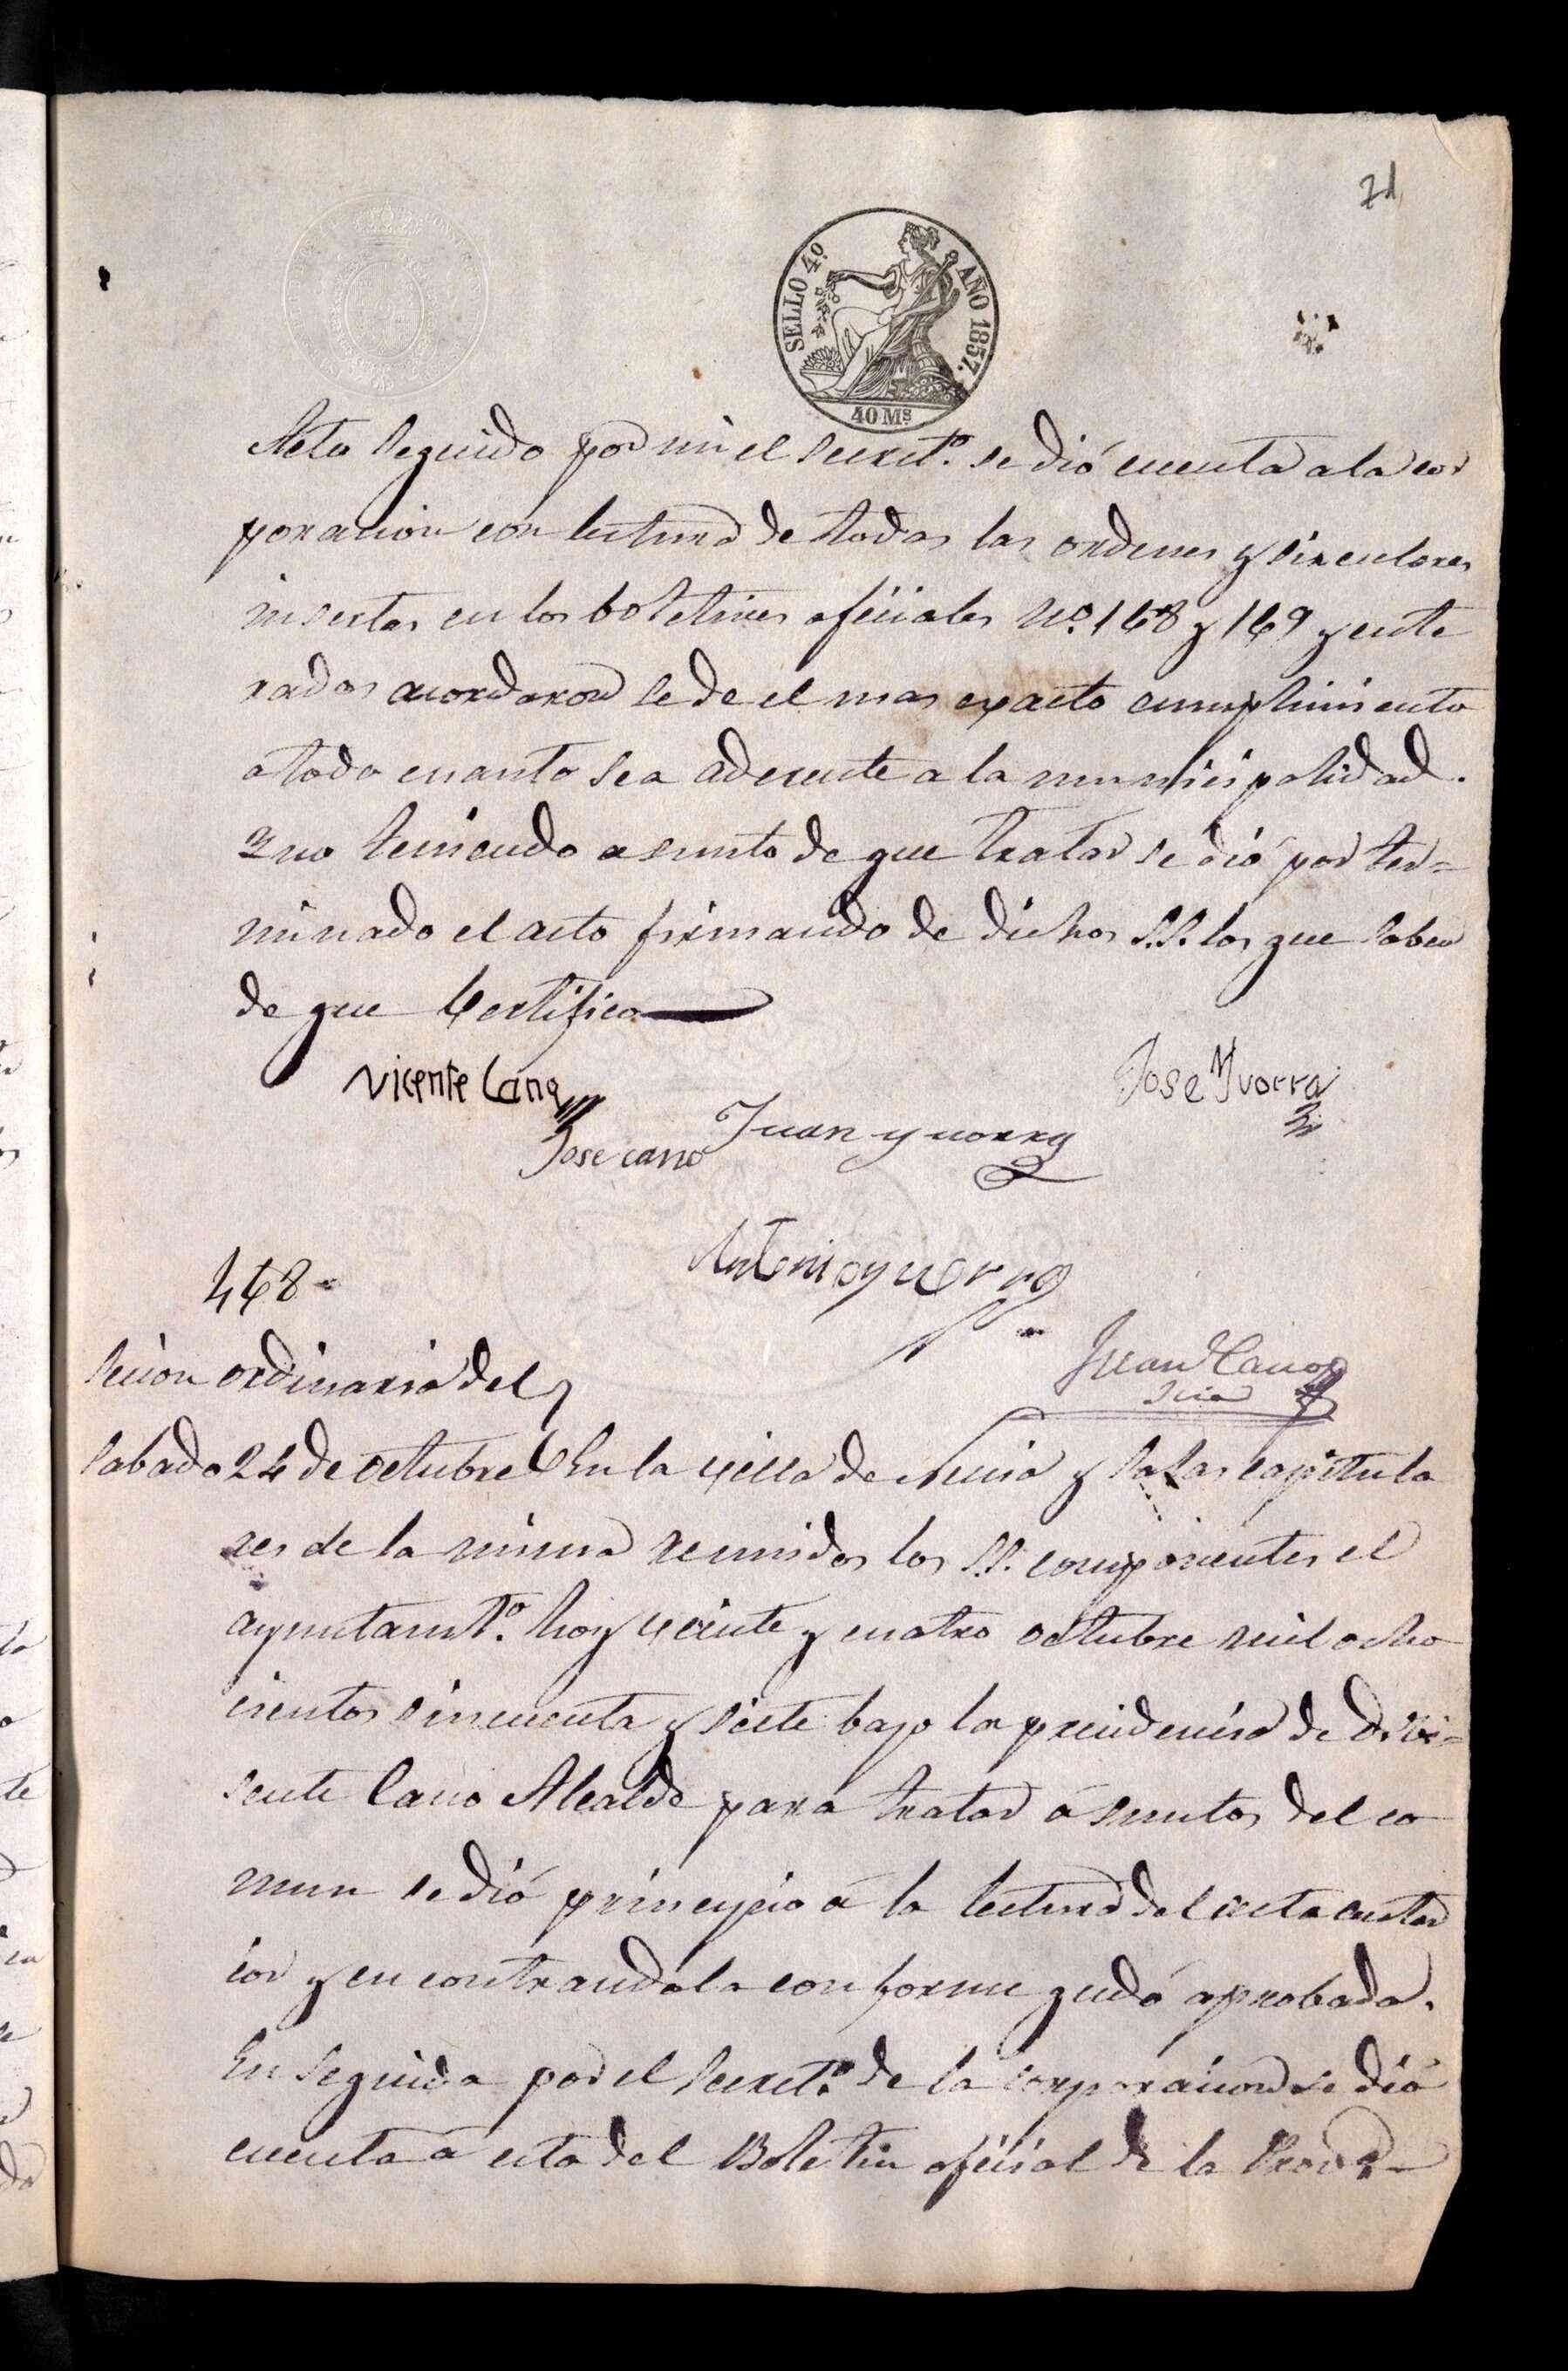 71
SELLO 4º. AÑO 1857.
40 Ms
Acto seguido por mi el secretº. se dió cuenta a la cor
poracion con lectura de todas las ordenes y sirculares
insertas en los boletines oficiales Nº. 168 y 169 y ente
rados acordaron se de el mas exacto cumplimiento
a todo cuanto sea aderente a la municipalidad.
Y no teniendo asunto de que tratar se dió por ter=
minado el acto firmando de dichos S.S. los que saben
de que Certifico
Vicente Cano
Jose Yvorra
Juan yvorra
Jose cano
Antonio yvorra
468
Juan Cano
Srio
Secion ordinaria del
Sabado 24 de octubre
En la villa de Nucia y Salas capitula
res de la misma reunidos los S.S. componentes el
ayuntamtº. hoy veinte y cuatro octubre mil ocho
cientos sincuenta y siete bajo la precidencia de D. Vi=
sente Cano Alcalde para tratar asuntos del co
mun se dió principio á la lectura del acta anter
ior y encontrandola conforme quedó aprobada.
En seguida por el secretº. de la corporacion se dió
cuenta á esta del Boletin oficial de la Prova